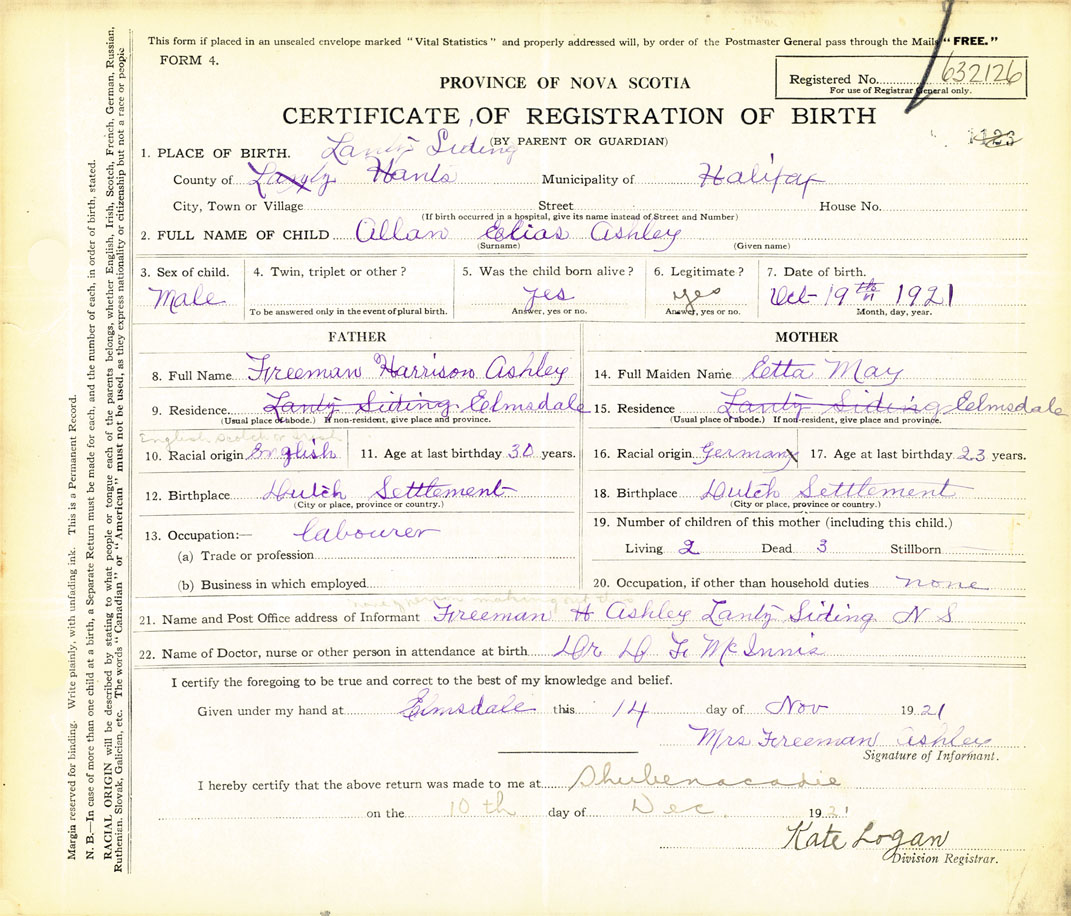 This form if placed in an unsealed envelope marked "Vital Statistics" and properly addressed will, by order of the Postmaster General pass through the Mails "FREE."
FORM 4.
Registered No. 632126
For use of Registrar General only.
PROVINCE OF NOVA SCOTIA
CERTIFICATE OF REGISTRATION OF BIRTH
(BY PARENT OR GUARDIAN)
1123
1. PLACE OF BIRTH. Lantz Siding
County of Hants Municipality of Halifax
City, Town or Village Street House No.
(If birth occurred in a hospital, give its name instead of Street and Number)
2. FULL NAME OF CHILD Allan Elias Ashley
(Surname) (Given name)
3. Sex of child. 4. Twin, triplet or other? 5. Was the child born alive? 6. Legitimate? 7. Date of birth.
Male yes yes Oct 19th 1921
To be answered only in the event of plural birth. Answer, yes or no. Answer, yes or no. Month, day, year.
FATHER MOTHER
8. Full Name Freeman Harrison Ashley 14. Full Maiden Name Etta May
9. Residence Lantz Siding. Eelmsdale 15. Residence Lantz Siding Eelmsdale
(Usual place of abode.) If non-resident, give place and province. (Usual place of abode.) If non-resident, give place and province.
English Scotch or Irish
10. Racial origin English 11. Age at last birthday 30 years. 16. Racial origin German 17. Age at last birthday 23 years.
12. Birthplace Dutch Settlement 18. Birthplace Dutch Settlement
(City or place, province or country.) (City or place, province or country.)
13. Occupation:— labourer 19. Number of children of this mother (including this child.)
(a) Trade or profession Living 2 Dead 3 Stillborn
(b) Business in which employed 20. Occupation, if other than household duties none
name of person making out this
21. Name and Post Office address of Informant Freeman H Ashley Lantz Siding N S
22. Name of Doctor, nurse or other person in attendance at birth Dr D F McInnis
I certify the foregoing to be true and correct to the best of my knowledge and belief.
Given under my hand at Elmsdale this 14 day of Nov 1921
Mrs Freeman Ashley
Signature of Informant.
I hereby certify that the above return was made to me at Shubenacadie
on the 10th day of Dec. 1921
Kate Logan
Division Registrar.
Margin reserved for binding. Write plainly, with unfading ink. This is a Permanent Record.
N. B.—In case of more than one child at a birth, a Separate Return must be made for each, and the number of each, in order of birth, stated.
RACIAL ORIGIN will be described by stating to what people or tongue each of the parents belongs, whether English, Irish, Scotch, French, German, Russian,
Ruthenian, Slovak, Galician, etc. The words "Canadian" or "American" must not be used, as they express nationality or citizenship but not a race or people